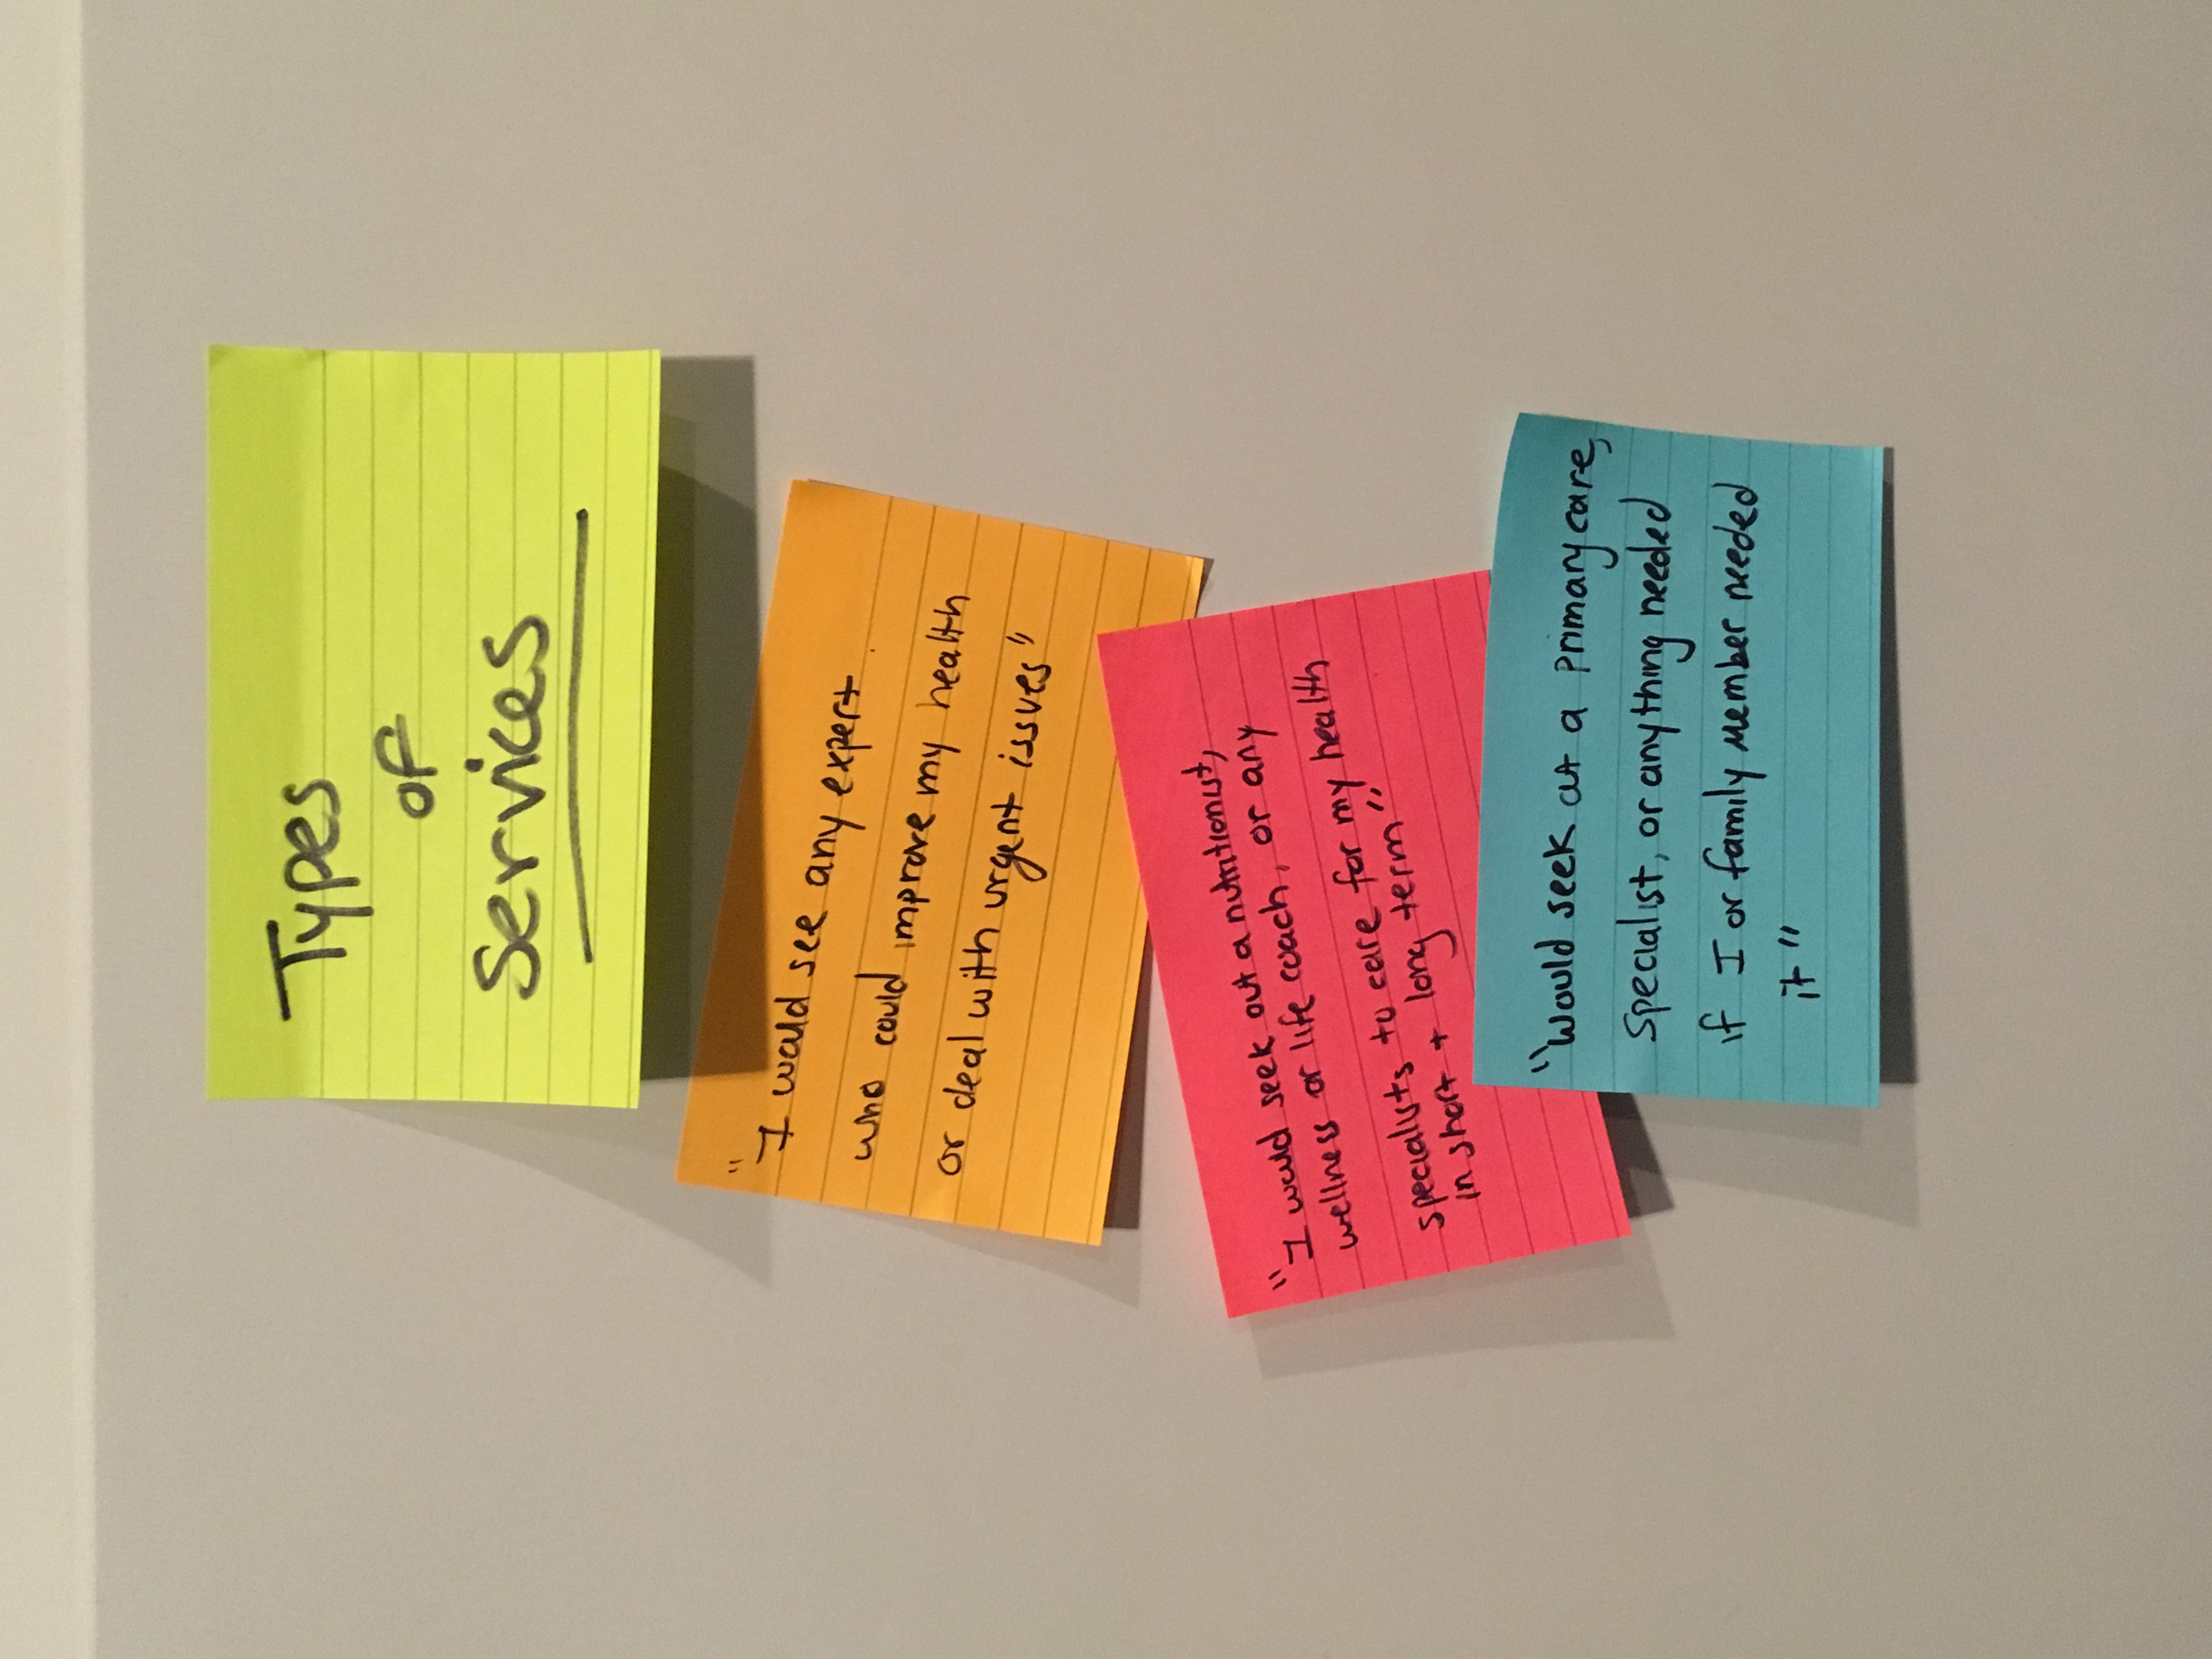 Types
of
Services
"I would see any expert
who could improve my health
or deal with urgent issues"
"I would seek out a nutritionist,
wellness or life coach, or any
specialists to care for my health
in short + long term"
"Would seek out a primary care,
specialist, or anything needed
if I or family member needed
it"